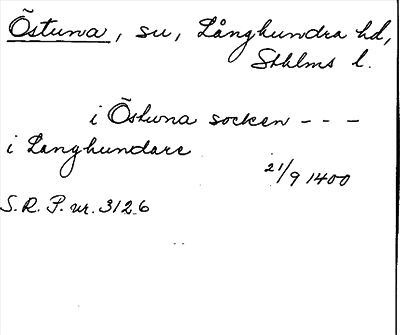 Östuna, su, Långhundra hd,
Sthlms l.
i Östuna socken - - -
i Langhundare
21/9 1400
S.R.P. nr. 3126